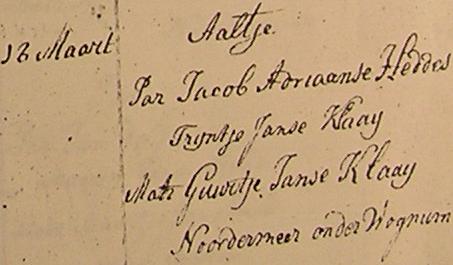 Aaltje.
18 Maart
Par Jacob Adriaanse Heddes
Tryntje Janse Klaay
Matr Guurtje Janse Klaay
Noordermeer onder Wognum